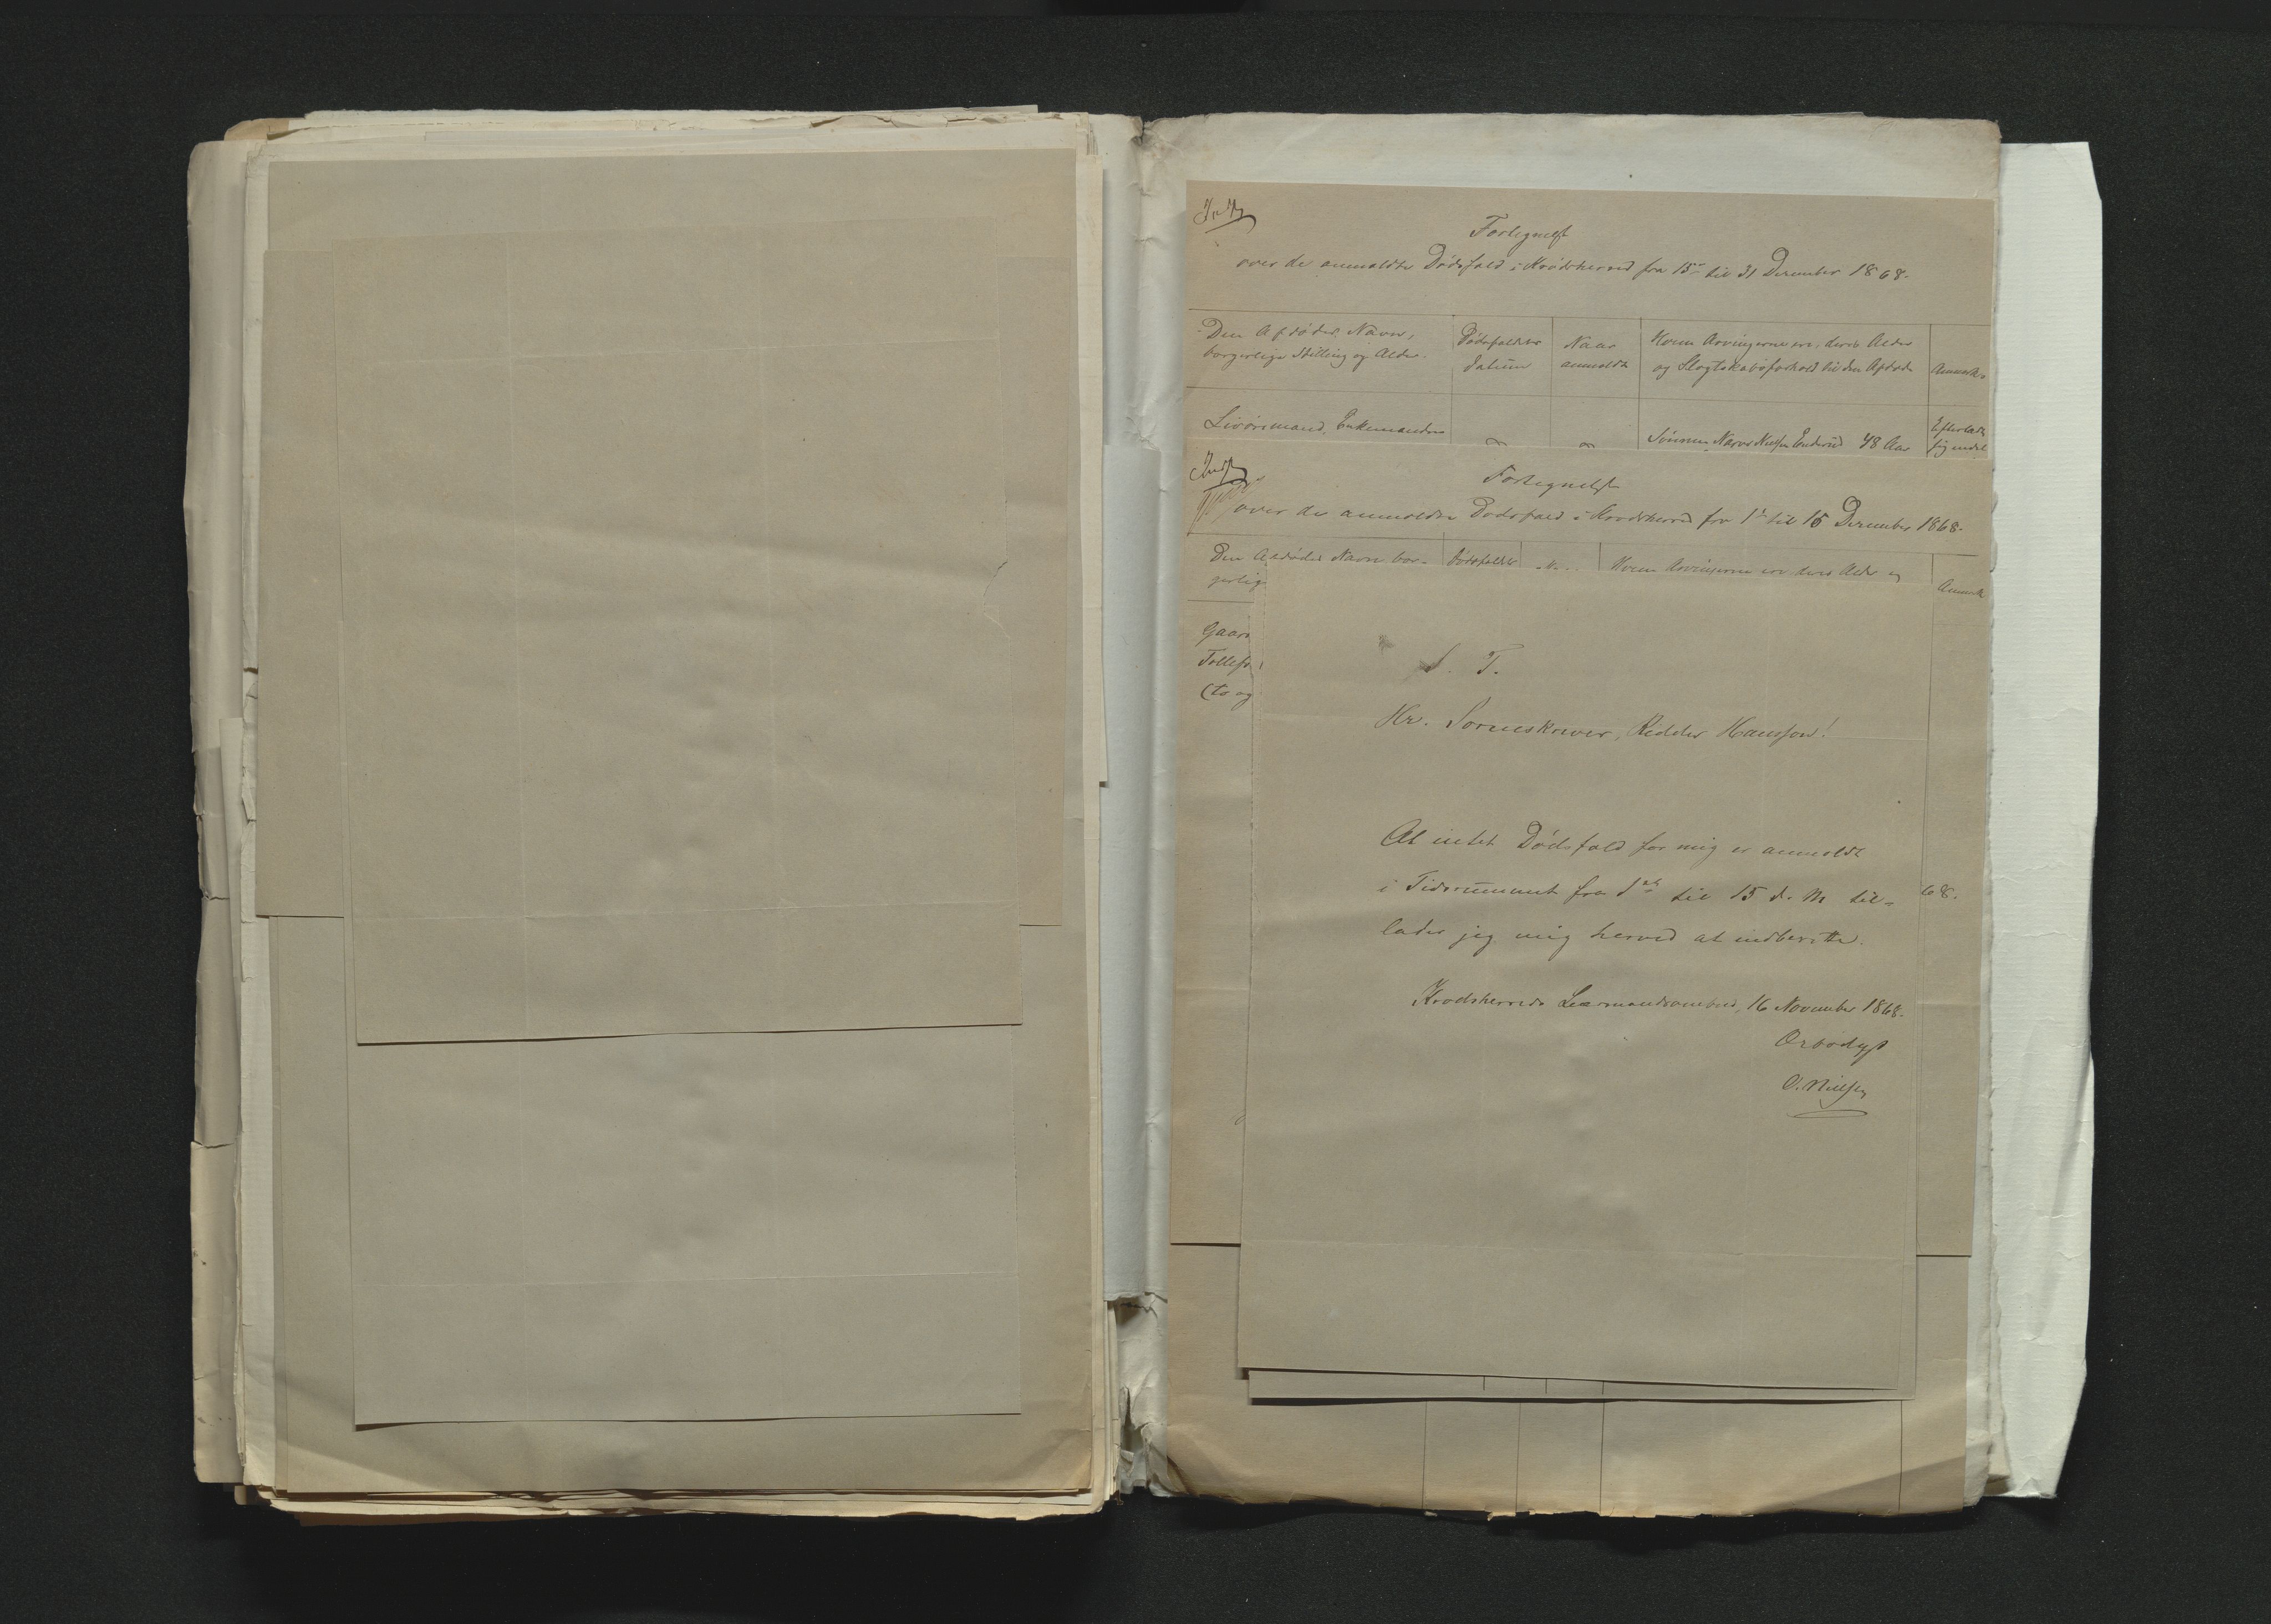 Fortegnelse
over de anmeldte Dødsfald i Krødsherred fra 15de til 31 December 1868.
Den Afdødes Navn,
borgerlige Stilling og Alder.
Dødsfaldets
Datum
Naar
anmeldt
Hvem Arvingerne ere, deres Alder
og Slægtskabsforhold til den Afdøde
Anmærk.
Livøremand, Enkemanden
Sønnen Narve Nielsen Enderud 48 Aar
Efterlod
sig endel
Fortegnelse
over de anmeldte Dødsfald i Krødsherred fra 1ste til 15 December 1868.
Den Afdødes Navn bor-
gerlig
Dødsfaldets
Hvem Arvingerne ere deres Alder og
Anmærk
Gaard
Tollefs
(to og
S. T.
Hr. Sorenskriver, Ridder Hansson!
At intet Dødsfald for mig er anmeldt
i Tidsrummet fra 1ste til 15 d. M til-
lader jeg mig herved at indberette.
68.
Krødsherreds Lensmandsombud, 16 November 1868.
Ærbødigst
O. Nielsen